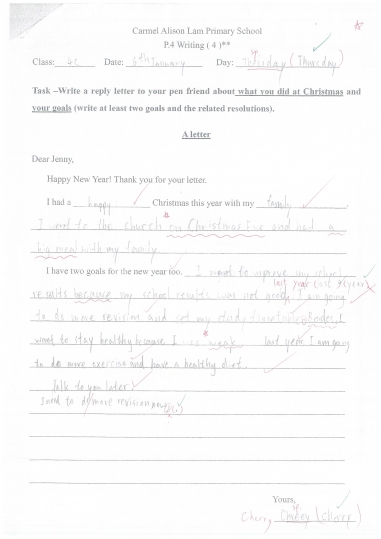 Carmel Alison Lam Primary School
P.4 Writing ( 4 )**
Class: 4C Date: 6th January Day: Thursday (Thursday)
Task –Write a reply letter to your pen friend about what you did at Christmas and
your goals (write at least two goals and the related resolutions).
A letter
Dear Jenny,
Happy New Year! Thank you for your letter.
I had a happy Christmas this year with my family
I went to the church on Christmas Eve and had a
big meal with my family
I have two goals for the new year too. I want to improve my school
last year (last year)
results because my school results was not good. I am going
to do more revision and set my study timetable. Besides, I
want to stay healthy because I was weak last year. I am going
to do more exercise and have a healthy diet.
Talk to you later!
I need to do more revision now
Yours,
Cherry (Cherry)